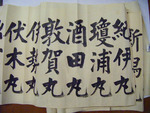 紀伊丸
瓊浦丸
酒田丸
敦賀丸
伊勢丸
伏木丸